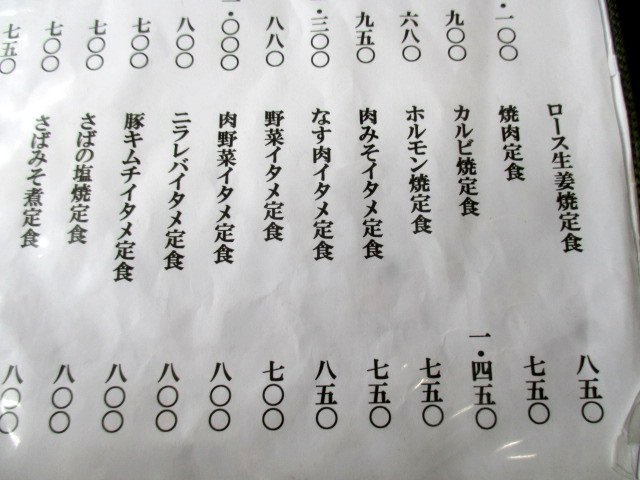 ・一〇〇
九〇〇
六八〇
九五〇
・三〇〇
八八〇
・〇〇〇
八〇〇
七〇〇
七〇〇
七〇〇
七五〇
ロース生姜焼定食 八五〇
焼肉定食 七五〇
カルビ焼定食 一・四五〇
ホルモン焼定食 七五〇
肉みそイタメ定食 七五〇
なす肉イタメ定食 八五〇
野菜イタメ定食 七〇〇
肉野菜イタメ定食 八〇〇
ニラレバイタメ定食 八〇〇
豚キムチイタメ定食 八〇〇
さばの塩焼定食 八〇〇
さばみそ煮定食 八〇〇